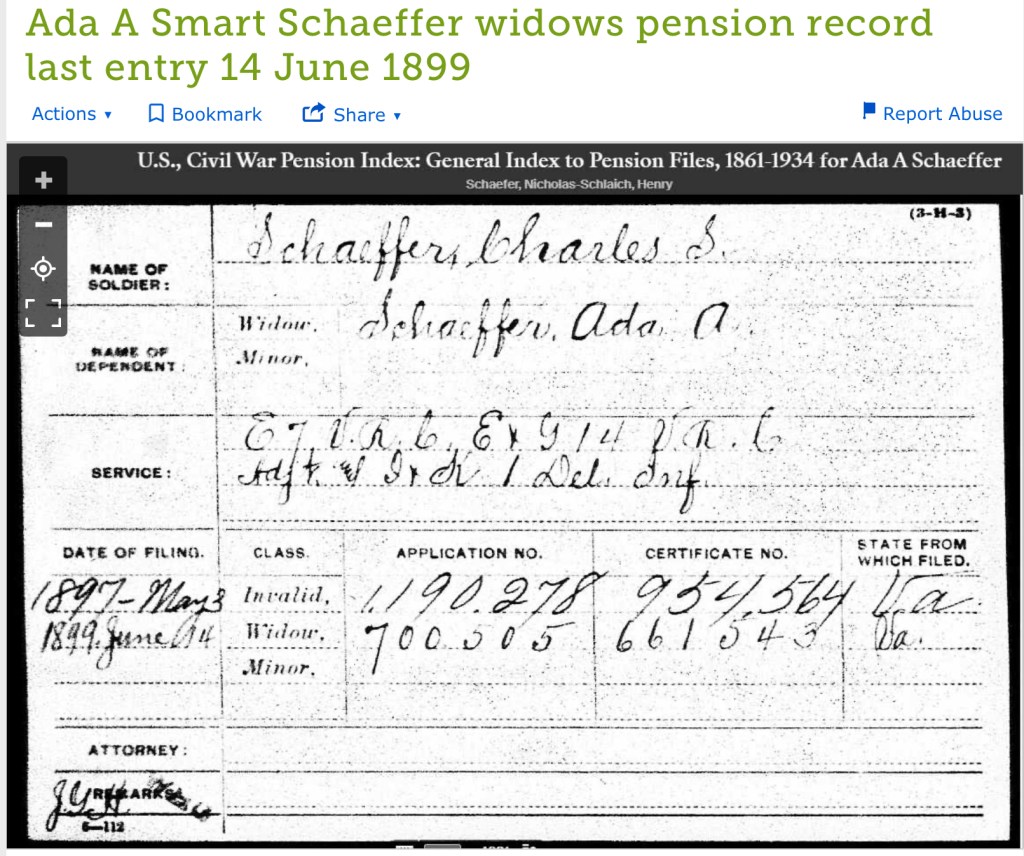 Ada A Smart Schaeffer widows pension record
last entry 14 June 1899
Actions ▾ Bookmark Share ▾ Report Abuse
U.S., Civil War Pension Index: General Index to Pension Files, 1861-1934 for Ada A Schaeffer
Schaefer, Nicholas-Schlaich, Henry
(3-H-3)
NAME OF SOLDIER: Schaeffer, Charles S.
NAME OF DEPENDENT: Widow, Schaeffer, Ada A
Minor,
SERVICE: E 7 V.R.C., E & G 14 V.R.C.
Adjt. & I & K 1 Del. Inf.
DATE OF FILING. CLASS. APPLICATION NO. CERTIFICATE NO. STATE FROM WHICH FILED.
1897-May 3 Invalid, 1.190.278 954,564 Va.
1899. June 14 Widow, 700505 661543 Va.
Minor,
ATTORNEY:
REMARKS:
6-112